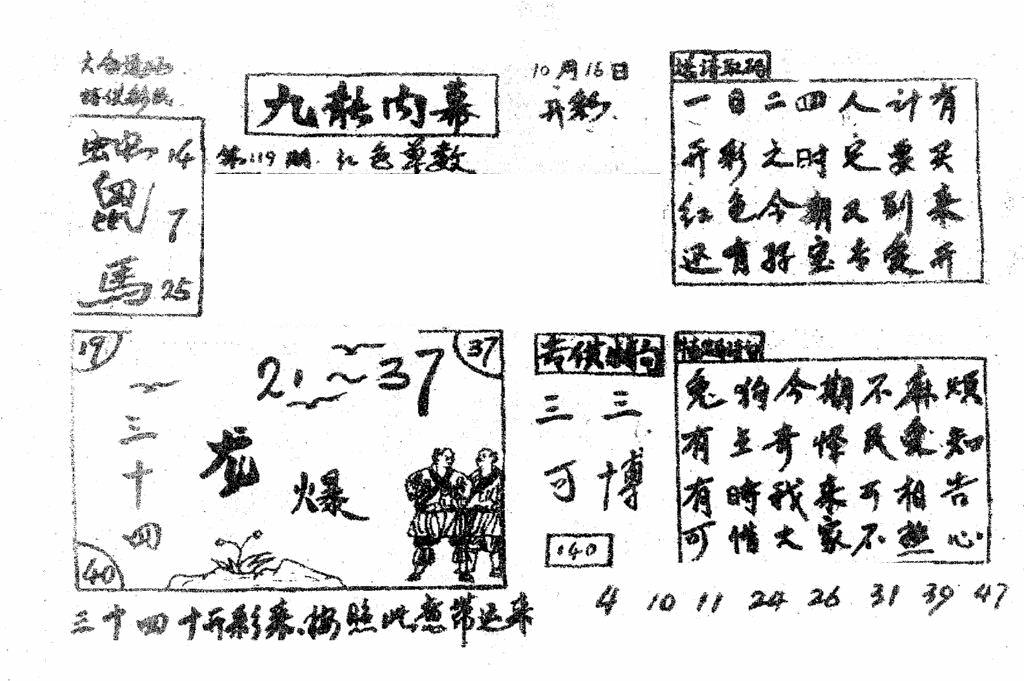 九龍内幕
第119期 红色单数
10月16日
开彩
蛇 14
鼠 7
馬 25
一日二四人计有
开彩之时定要买
红色今期又到来
还有好宝专爱开
19
37
21~37
三十四
龙
爆
40
三十四十开彩来,按照此意带运来
三三
可博
140
兔狗今期不麻烦
有点奇怪民爱知
有時我来可相告
可惜大家不热心
4 10 11 24 26 31 39 47